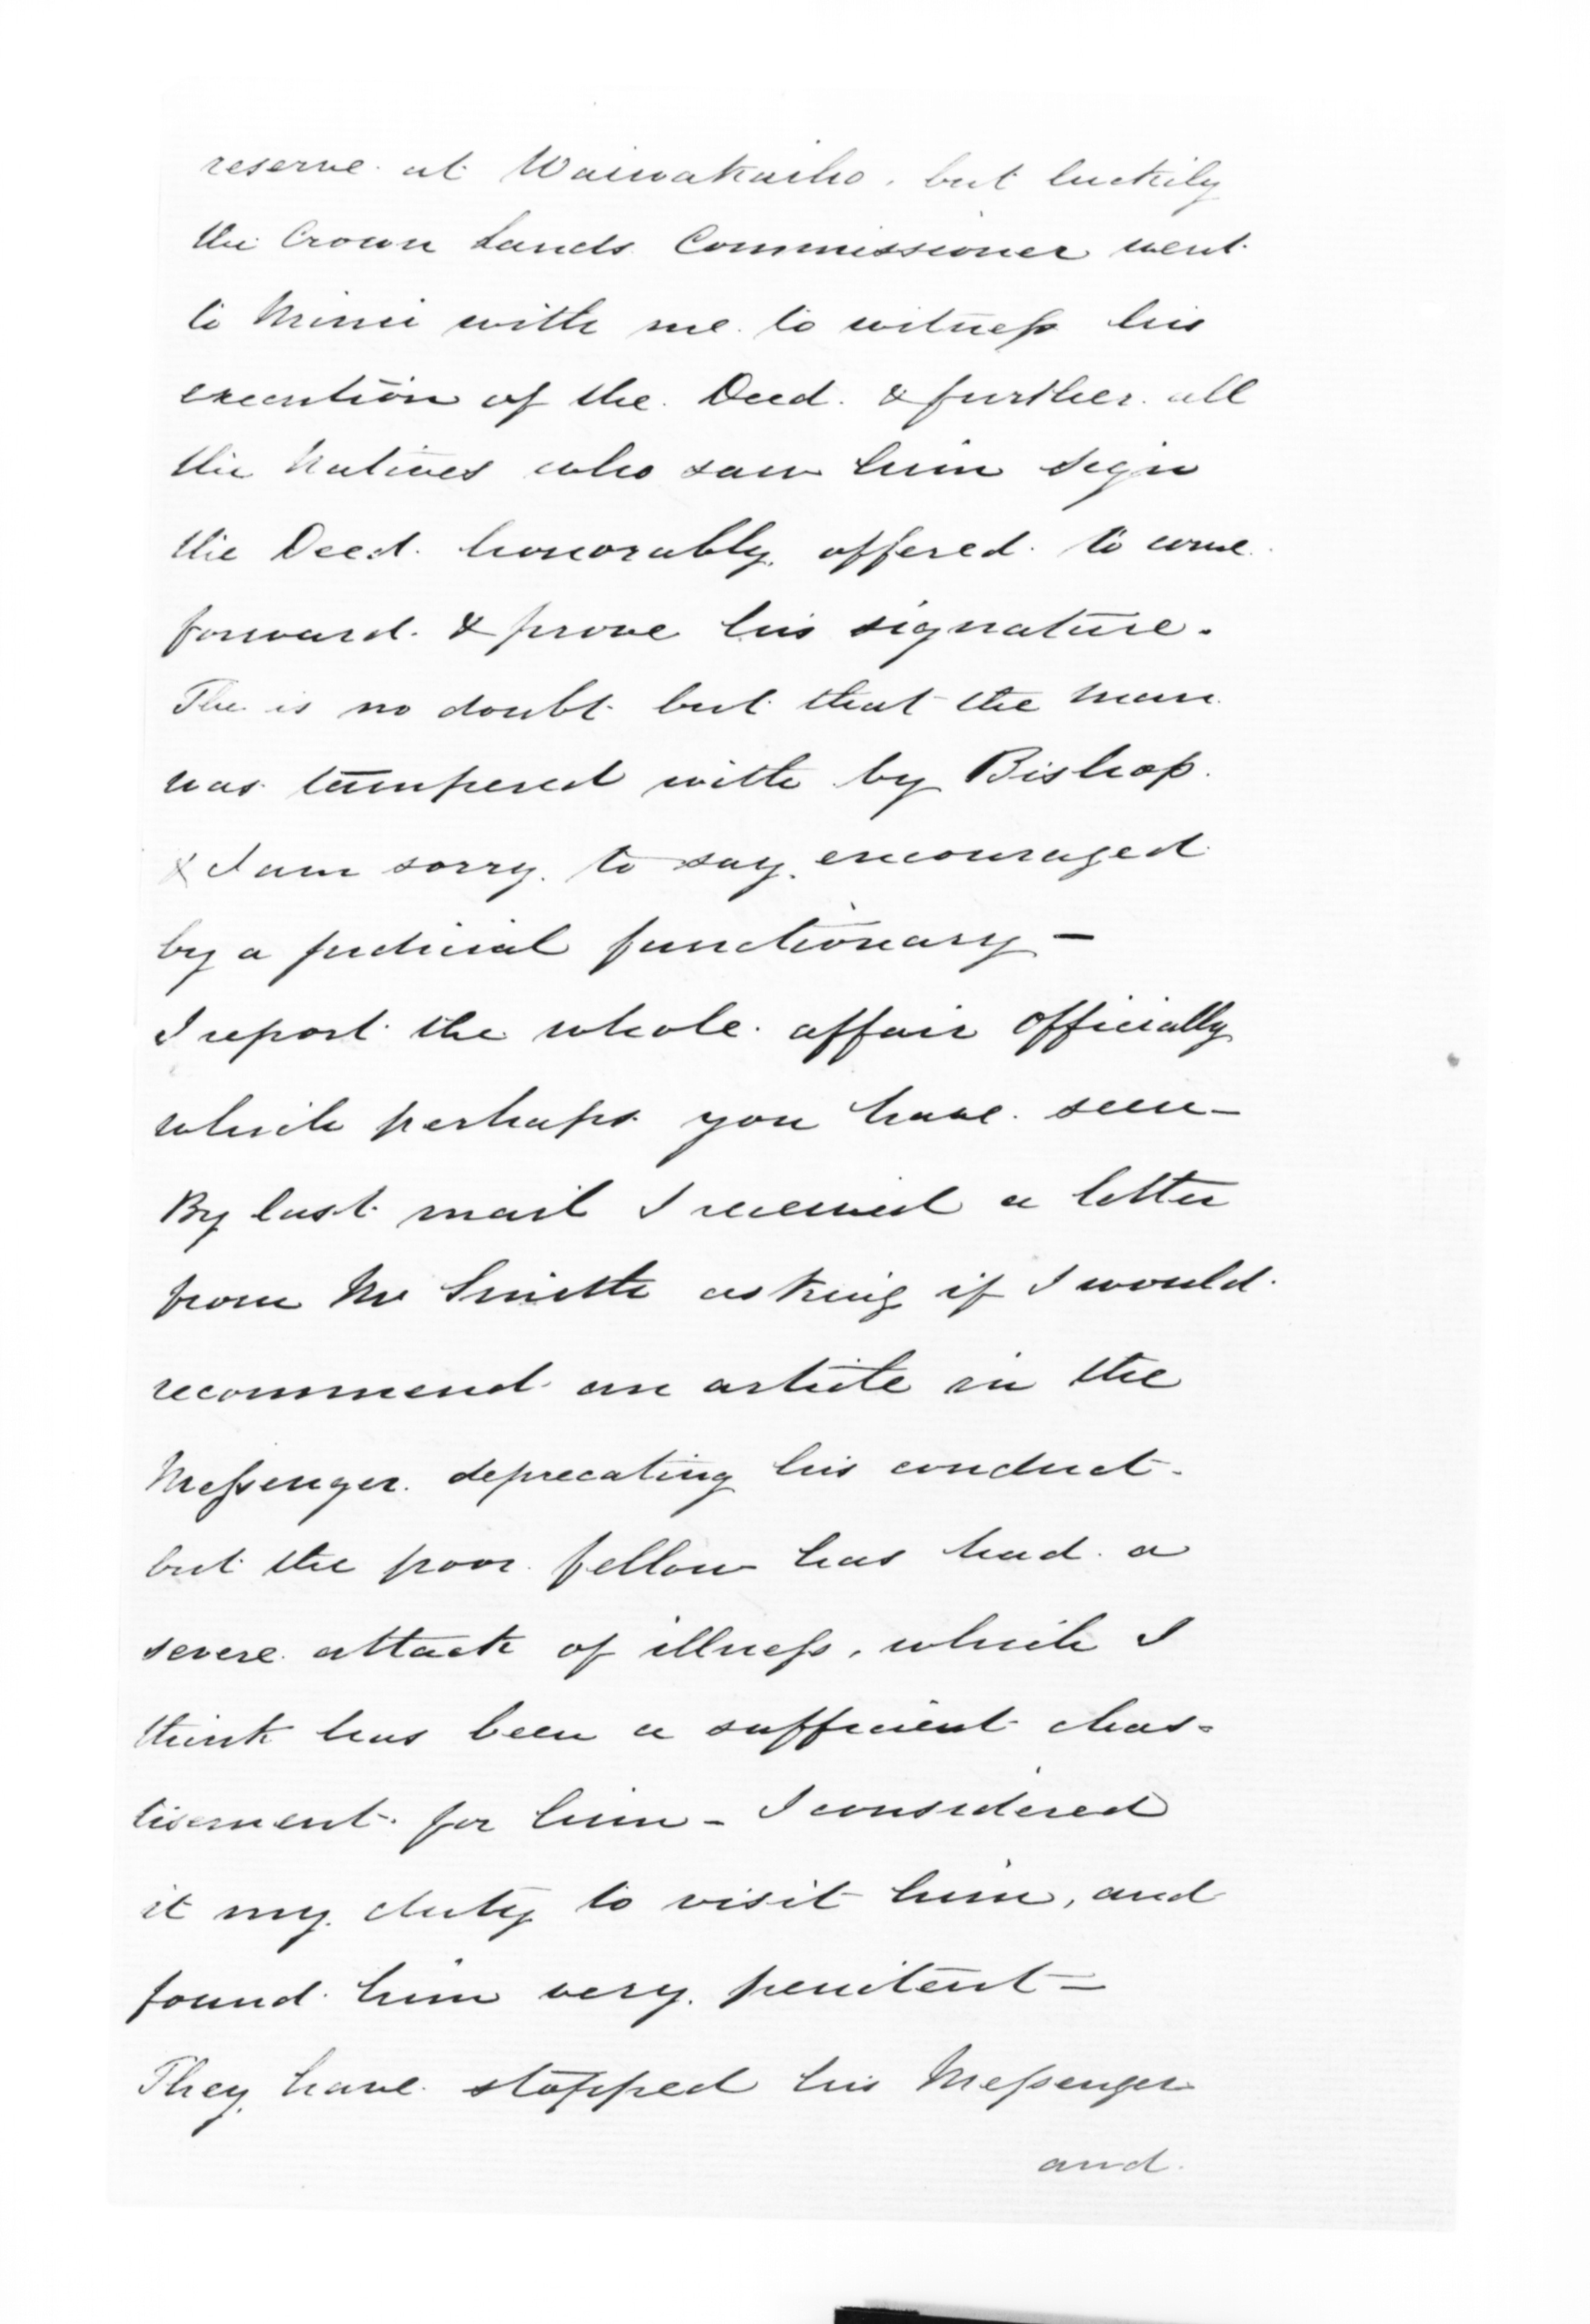 reserve at Waiwakaiho, but luckily
the Crown Lands Commissioner went
to Mimi with me to witness his
execution of the Deed. & further all
the Natives who saw him sign
the Deed honorably offered to come
forward & prove his signature.
The is no doubt but that the man
was tampered with by Bishop
& I am sorry to say encouraged
by a judicial functionary –
I report the whole affair officially
which perhaps you have seen –
By last mail I received a letter
from Mr Smith asking if I would
recommend an article in the
Messenger deprecating his conduct –
but the poor fellow has had a
severe attack of illness, which I
think has been a sufficient chas=
tisement for him – I considered
it my duty to visit him, and
found him very penitent –
They have stopped his Messenger
and